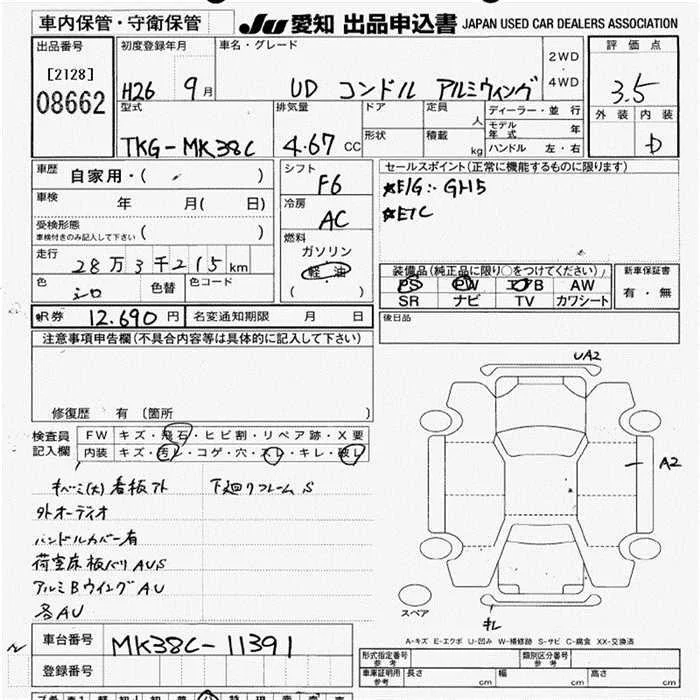 車内保管・守衛保管
JU 愛知 出品申込書 JAPAN USED CAR DEALERS ASSOCIATION
出品番号
[2128]
08662
初度登録年月
H26 9月
車名・グレード
UD コンドル アルミウィング
2WD
・
4WD
評価点
3.5
外装 内装
D
型式
TKG-MK38C
排気量
4.67 CC
ドア
形状
定員 人
積載 kg
ディーラー・並行
モデル年式 年
ハンドル 左・右
車歴 自家用・( )
車検 年 月( 日)
受検形態
車検付きのみ記入して下さい ( )
走行 28万3千215km
色 シロ 色替 色コード
シフト
F6
冷房
AC
燃料
ガソリン
軽油
( )
セールスポイント(正常に機能するものに限ります)
☆E/G:GH5
☆ETC
装備品(純正品に限り○をつけてください)
PS PW エアB AW
SR ナビ TV カワシート
新車保証書
有・無
R券 12.690円 名変通知期限 月 日
後日品
注意事項申告欄(不具合内容等は具体的に記入して下さい)
修復歴 有 〔箇所 〕
検査員
記入欄
FW キズ・飛石・ヒビ割・リペア跡・X要
内装 キズ・汚レ・コゲ・穴・スレ・キレ・破レ
キズベミ(大)看板アト 下廻りフレームS
外オーディオ
ハンドルカバー有
荷室床板バリAUS
アルミBウイングAU
各AU
UA2
A2
キレ
スペア
A-キズ E-エクボ U-凹み W-補修跡 S-サビ C-腐食 XX-交換済
車台番号 MK38C-11391
登録番号
形式指定番号
参考
類別区分番号
参考
車庫証明用
参考
長さ cm 幅 cm 高さ cm